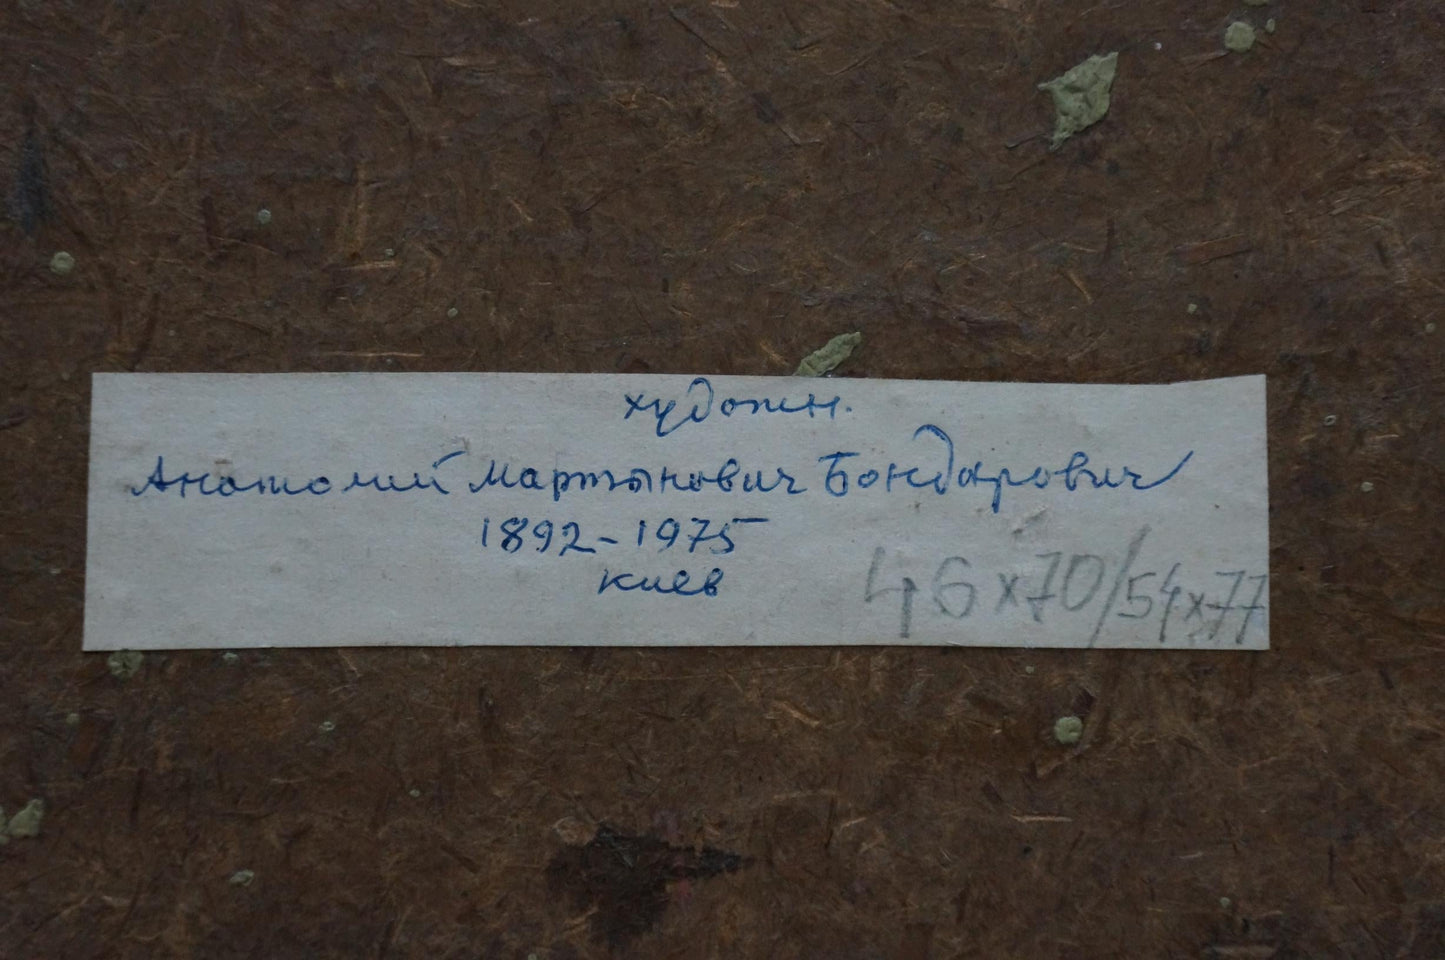 художн.
Анатолий Мартынович Бондарович
1892-1975
Киев
46x70/54x77